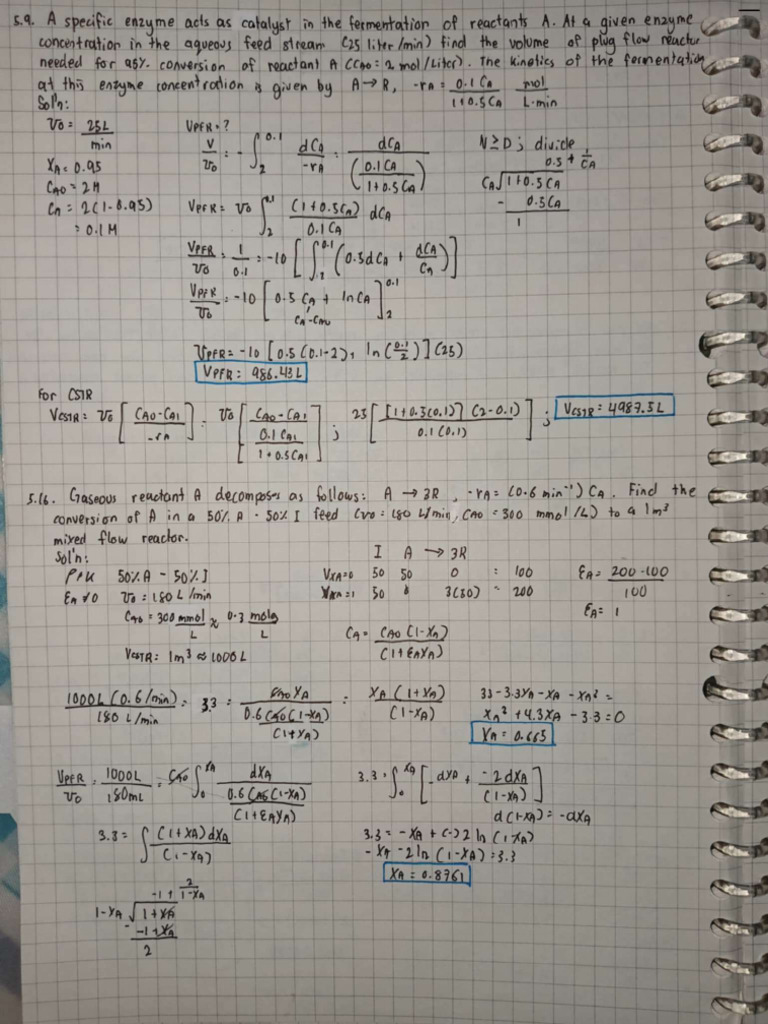 5.9. A specific enzyme acts as catalyst in the fermentation of reactants A. At a given enzyme
concentration in the aqueous feed stream (25 liter/min) find the volume of plug flow reactor
needed for 95% conversion of reactant A (CA0 = 2 mol/Liter). The kinetics of the fermentation
at this enzyme concentration is given by A → R, -rA = 0.1 CA / 1+0.5CA mol / L·min
Sol'n:
V0 = 25L / min
XA = 0.95
CA0 = 2M
CA = 2(1-0.95)
= 0.1 M
VPFR = ?
V / V0 = - ∫ 2 0.1 dCA / -rA = dCA / (0.1CA / 1+0.5CA)
VPFR = V0 ∫ 2 0.1 (1+0.5CA) / 0.1CA dCA
VPFR / V0 = 1 / 0.1 = -10 [ ∫ 2 0.1 (0.5dCA + dCA / CA) ]
VPFR / V0 = -10 [ 0.5 CA + ln CA ] 2 0.1
CA - CA0
VPFR = -10 [ 0.5 (0.1-2) + ln (0.1/2) ] (25)
VPFR = 986.43L
N ≥ D ; divide
0.5 + 1/CA
CA √ 1+0.5CA
- 0.5CA
1
For CSTR
VCSTR = V0 [ CA0-CA1 / -rA ] = V0 [ CA0-CA1 / 0.1CA1 / 1+0.5CA1 ] ; 25 [ [1+0.5(0.1)] (2-0.1) / 0.1(0.1) ] ; VCSTR = 4987.5L
5.16. Gaseous reactant A decomposes as follows: A → 3R, -rA = (0.6 min⁻¹) CA. Find the
conversion of A in a 50% A - 50% I feed (V0 = 180 L/min, CA0 = 300 mmol/L) to a 1m³
mixed flow reactor.
Sol'n:
50% A - 50% I
EA ≠ 0 V0 = 180 L/min
CA0 = 300 mmol / L ≈ 0.3 mol / L
VCSTR = 1m³ ≈ 1000L
I A → 3R
VXA=0 50 50 0 = 100
VXA=1 50 0 3(50) = 200
CA = CA0 (1-XA) / (1+EAXA)
EA = 200-100 / 100
EA = 1
1000L (0.6/min) / 180 L/min = 3.3 = CA0 XA / 0.6 CA0 (1-XA) / (1+XA) = XA (1+XA) / (1-XA)
3.3 - 3.3XA - XA - XA² =
XA² + 4.3XA - 3.3 = 0
XA = 0.665
VPFR / V0 = 1000L / 180mL = CA0 ∫ 0 XA dXA / 0.6 CA0 (1-XA) / (1+EAXA)
3.3 = ∫ (1+XA) dXA / (1-XA)
-1 + 2 / 1-XA
1-XA √ 1+XA
- -1+XA
2
3.3 = ∫ 0 XA [ -dXA + -2dXA / (1-XA) ]
d(1-XA) = -dXA
3.3 = -XA + (-) 2 ln (1-XA)
-XA - 2 ln (1-XA) = 3.3
XA = 0.8761